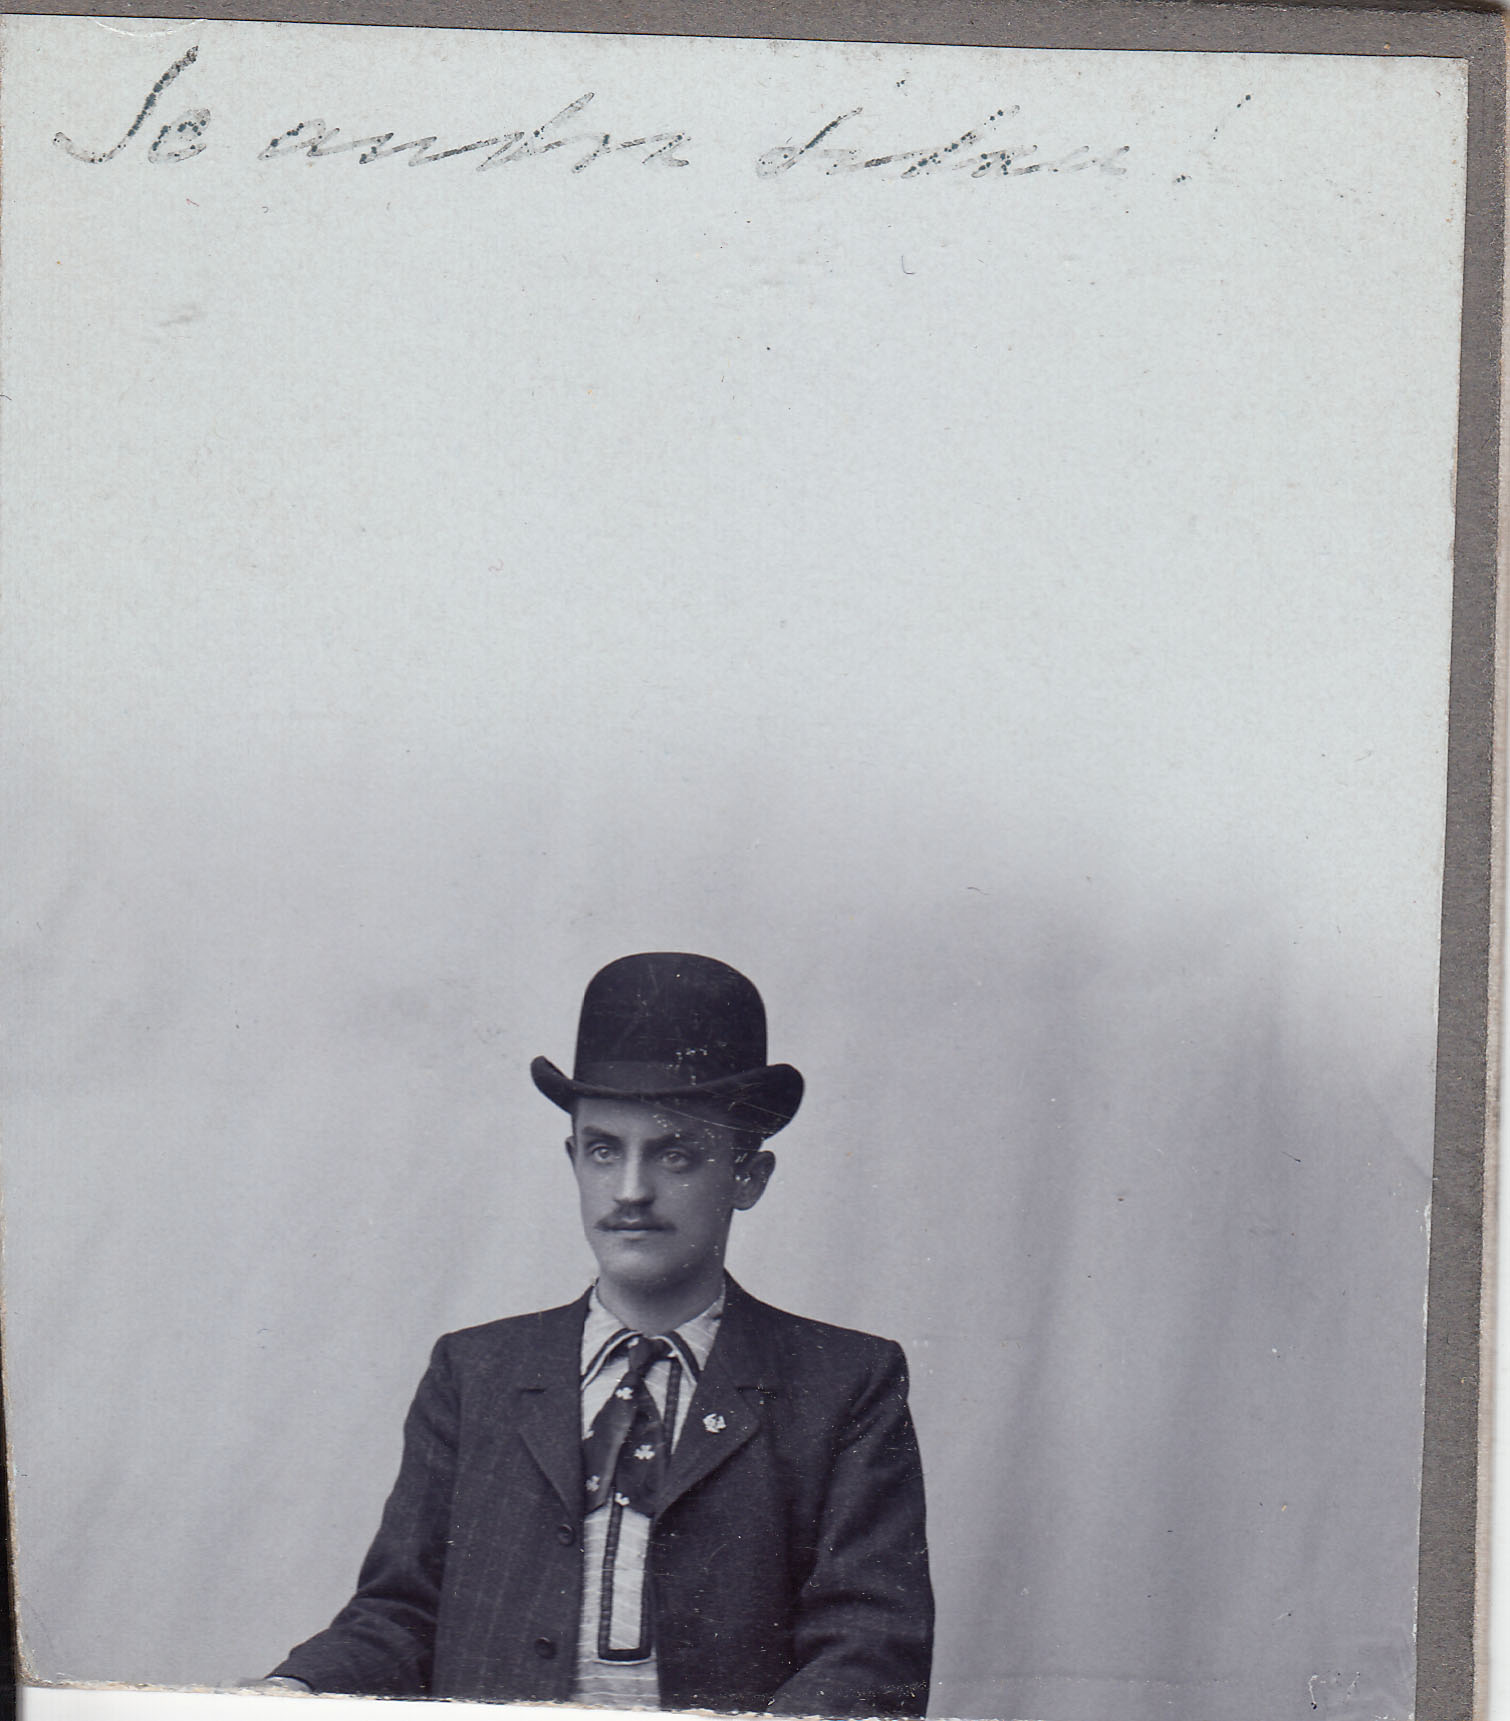 Se andra sidan!